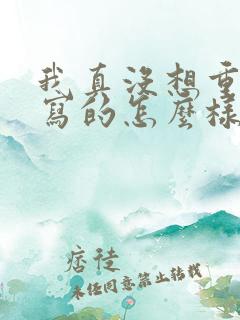 我真没想重
寫的怎麼樣
痞徒
未经同意禁止转载